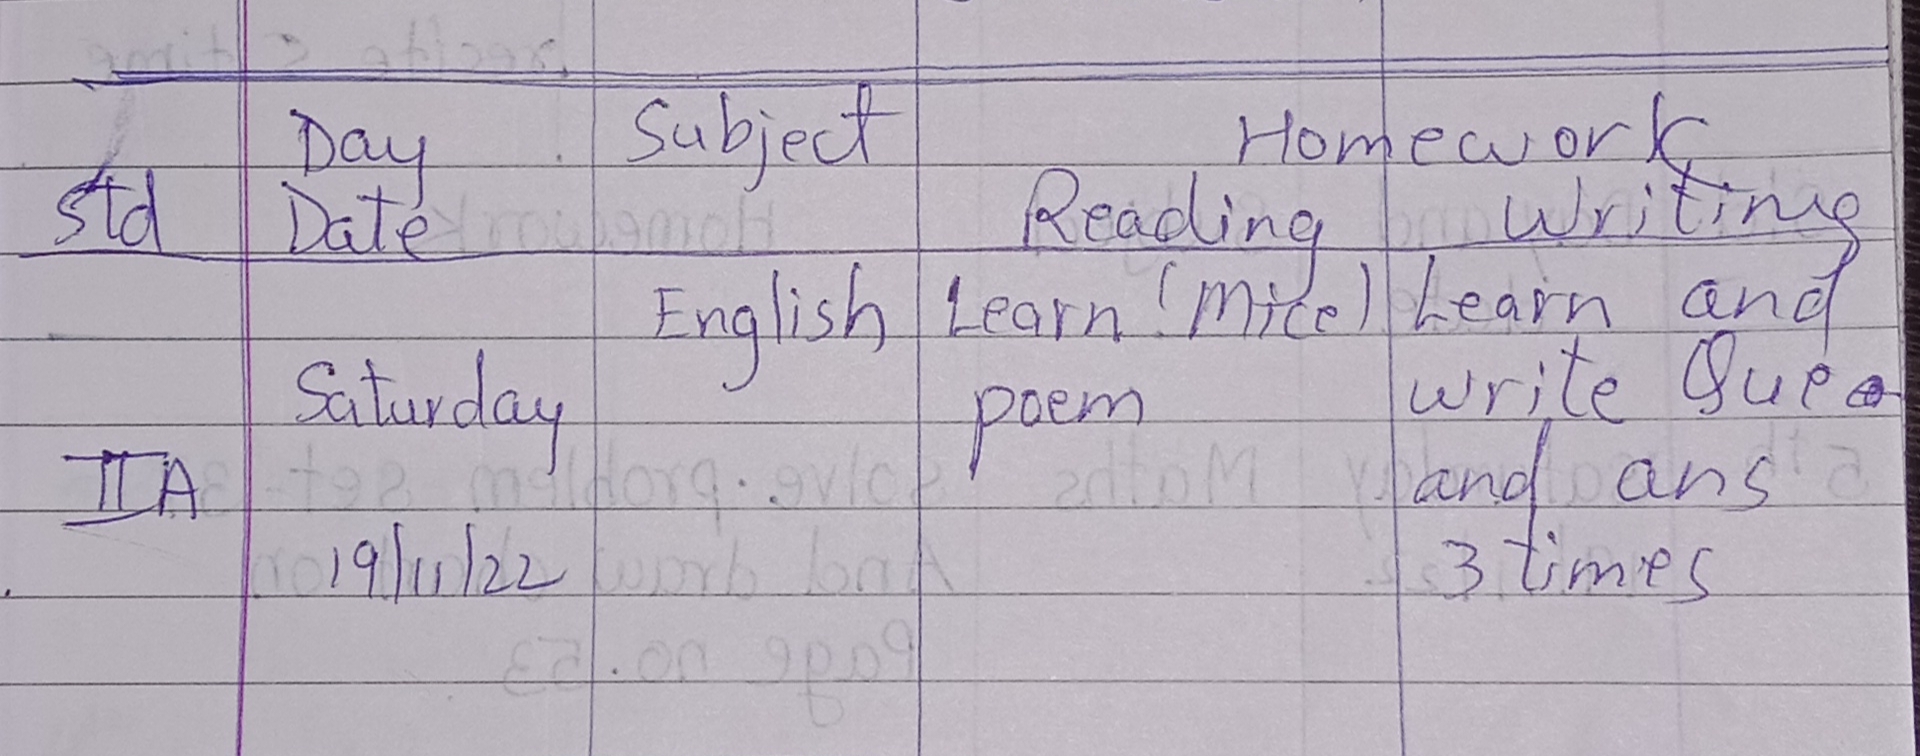 Day Subject Homework
Std Date Reading Writing
English Learn (Mice) Learn and
Saturday poem write Que
II A and ans
19/11/22 3 times